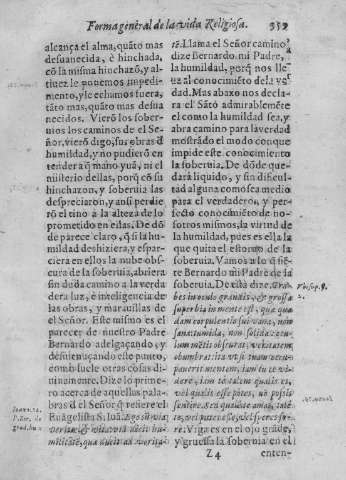 Forma general de la vida Religiosa. 359
alcança el alma, quãto mas
desuanecida, è hinchada,
cõ la misma hinchazõ, y al-
tiuez le ponemos impedi-
mento, y le echamos fuera,
tãto mas, quãto mas desua
necidos. Vierõ los sober-
uios los caminos de el Se-
ñor, vierõ digo, sus obras d
humildad, y no pudierõ en
tender a q̃ mano yuã, ni el
misterio dellas, porq̃ cõ su
hinchazon, y soberuia las
despreciaron, y ansi perdie
rõ el tino à la alteza de lo
prometido en ellas. De dõ
de parece claro, q̃ si la hu-
mildad deshiziera, y espar-
ciera en ellos la nube obs-
cura de la soberuia, abriera
sin duda camino a la verda
dera luz, è inteligencia de
las obras, y marauillas de
el Señor. Este mismo es el
parecer de nuestro Padre
Bernardo adelgaçando, y
desmenuçando este punto,
como suele otras cosas di-
uinamente. Dize lo prime-
ro acerca de aquellas pala-
bras d el Señor q̃ refiere el
Euãgelista S. Iuã. Ego sũ via
veritas, & vita vià dicit hu-
militatẽ, qua ducit ad verita-
tẽ. Llama el Señor camino,
dize Bernardo mi Padre, a
la humildad, porq̃ nos lle-
ua al conocimiẽto de la ver
dad. Mas abaxo nos decla-
ra el Sãto admirablemẽte
el como la humildad sea, y
abra camino para la verdad
mostrãdo el modo con que
impide este conocimiento
la soberuia. De dõde que-
darà liquido, y sin dificul-
tad alguna como sea medio
para el verdadero, y per-
fecto conocimiẽto de no-
sotros mismos, la virtud de
la humildad, pues es ella la
que quita el estoruo de la
soberuia. Vamos a lo q̃ fie-
re Bernardo mi Padre de la
soberuia. De esta dize. Tra-
bes in oculo grandis, & grossa
superbia in mente est, qua qua-
dam corpulentia sui vana, non
sana, tumida, non solida, ocu-
lum mẽtis obscurat, veritatem
obumbrat: ita vt si tuam occu-
pauerit mentem, iam tu te vide-
re, iam te talem qualis es,
vel qualis esse potes, nõ possis
sentire
se. Viga es en el ojo grãde,
y gruessa la soberuia en el
Z 4 enten-